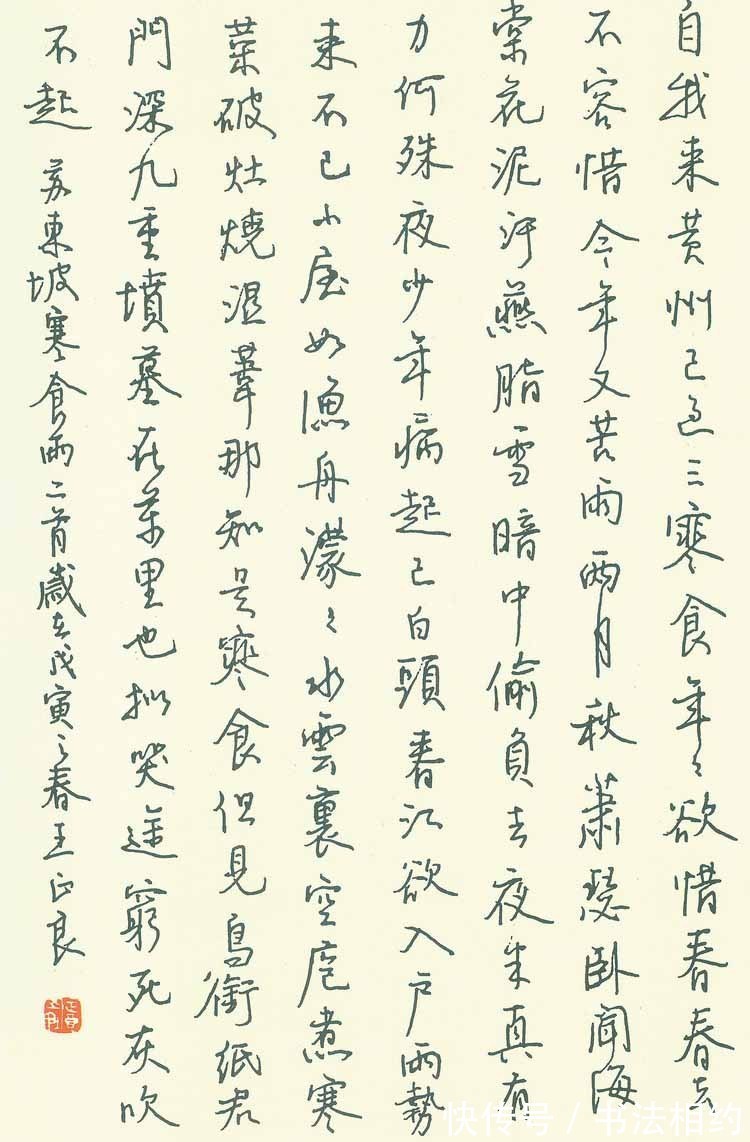 自我来黄州已过三寒食年々欲惜春春去
不容惜今年又苦雨兩月秋蕭瑟卧聞海
棠花泥汙燕脂雪暗中偷負去夜半真有
力何殊夜少年病起已白頭春江欲入户雨勢
来不已小屋如漁舟濛々水雲裏空庖煮寒
菜破灶燒湿葦那知是寒食但見烏銜紙君
門深九重墳墓在萬里也拟哭途窮死灰吹
不起 苏東坡寒食雨二首歲在戊寅之春王正良
快传号 / 书法相约